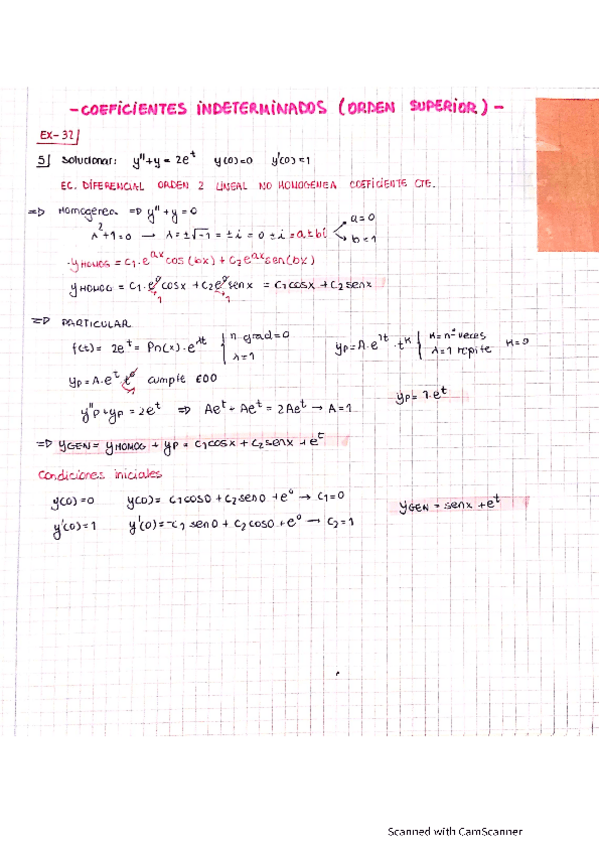 -COEFICIENTES INDETERMINADOS (ORDEN SUPERIOR)-
EX-32
5) Solucionar: y''+y = 2e^t y(0)=0 y'(0)=1
EC. DIFERENCIAL ORDEN 2 LINEAL NO HOMOGENEA COEFICIENTE CTE.
=> Homogénea => y''+y=0
λ²+1=0 → λ=±√-1 = ±i = 0±i = a±bi a=0 b=1
-yHOMOG = C1·e^ax cos(bx) + C2e^ax sen(bx)
yHOMOG = C1·e^0 cosx + C2e^0 senx = C1cosx + C2senx
1 1
=> PARTICULAR
f(t) = 2e^t = Pn(x)·e^λt n grad=0 λ=1 yp=A·e^1t·t^k k=nº veces λ=1 repite k=0
yp=A·e^t·t^0 cumple EDO yp= 1·e^t
y''p+yp = 2e^t => Ae^t+Ae^t = 2Ae^t → A=1
=> yGEN = yHOMOG + yp = C1cosx + C2senx + e^t
Condiciones iniciales
y(0)=0 y(0)= C1cos0 + C2sen0 + e^0 → C1=0 yGEN = senx + e^t
y'(0)=1 y'(0)=-C1 sen0 + C2cos0 + e^0 → C2=1
Scanned with CamScanner